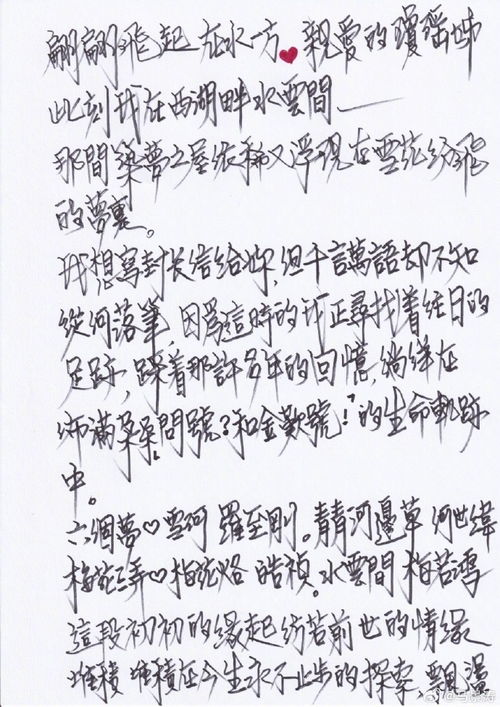 翩翩飛起 在水一方❤親愛的瓊瑤姊
此刻我在西湖畔水雲間—
那間築夢之屋依稀又浮現在雪花紛飛
的夢裏。
我想寫封长信給妳,但千言萬語却不知
從何落筆,因爲這時的我正尋找着往日的
足跡,踩着那許多年的回憶,徜徉在
佈滿朶朶問號?和金歎號!的生命軌跡
中。
六個夢♡雪珂 羅至剛。青青河邊草 何世緯
梅花三弄♡梅花烙 皓禎。水雲間 梅若鴻
這段初初的緣起彷若前世的情缘
堆積 堆積在今生永不止步的探索,飄盪